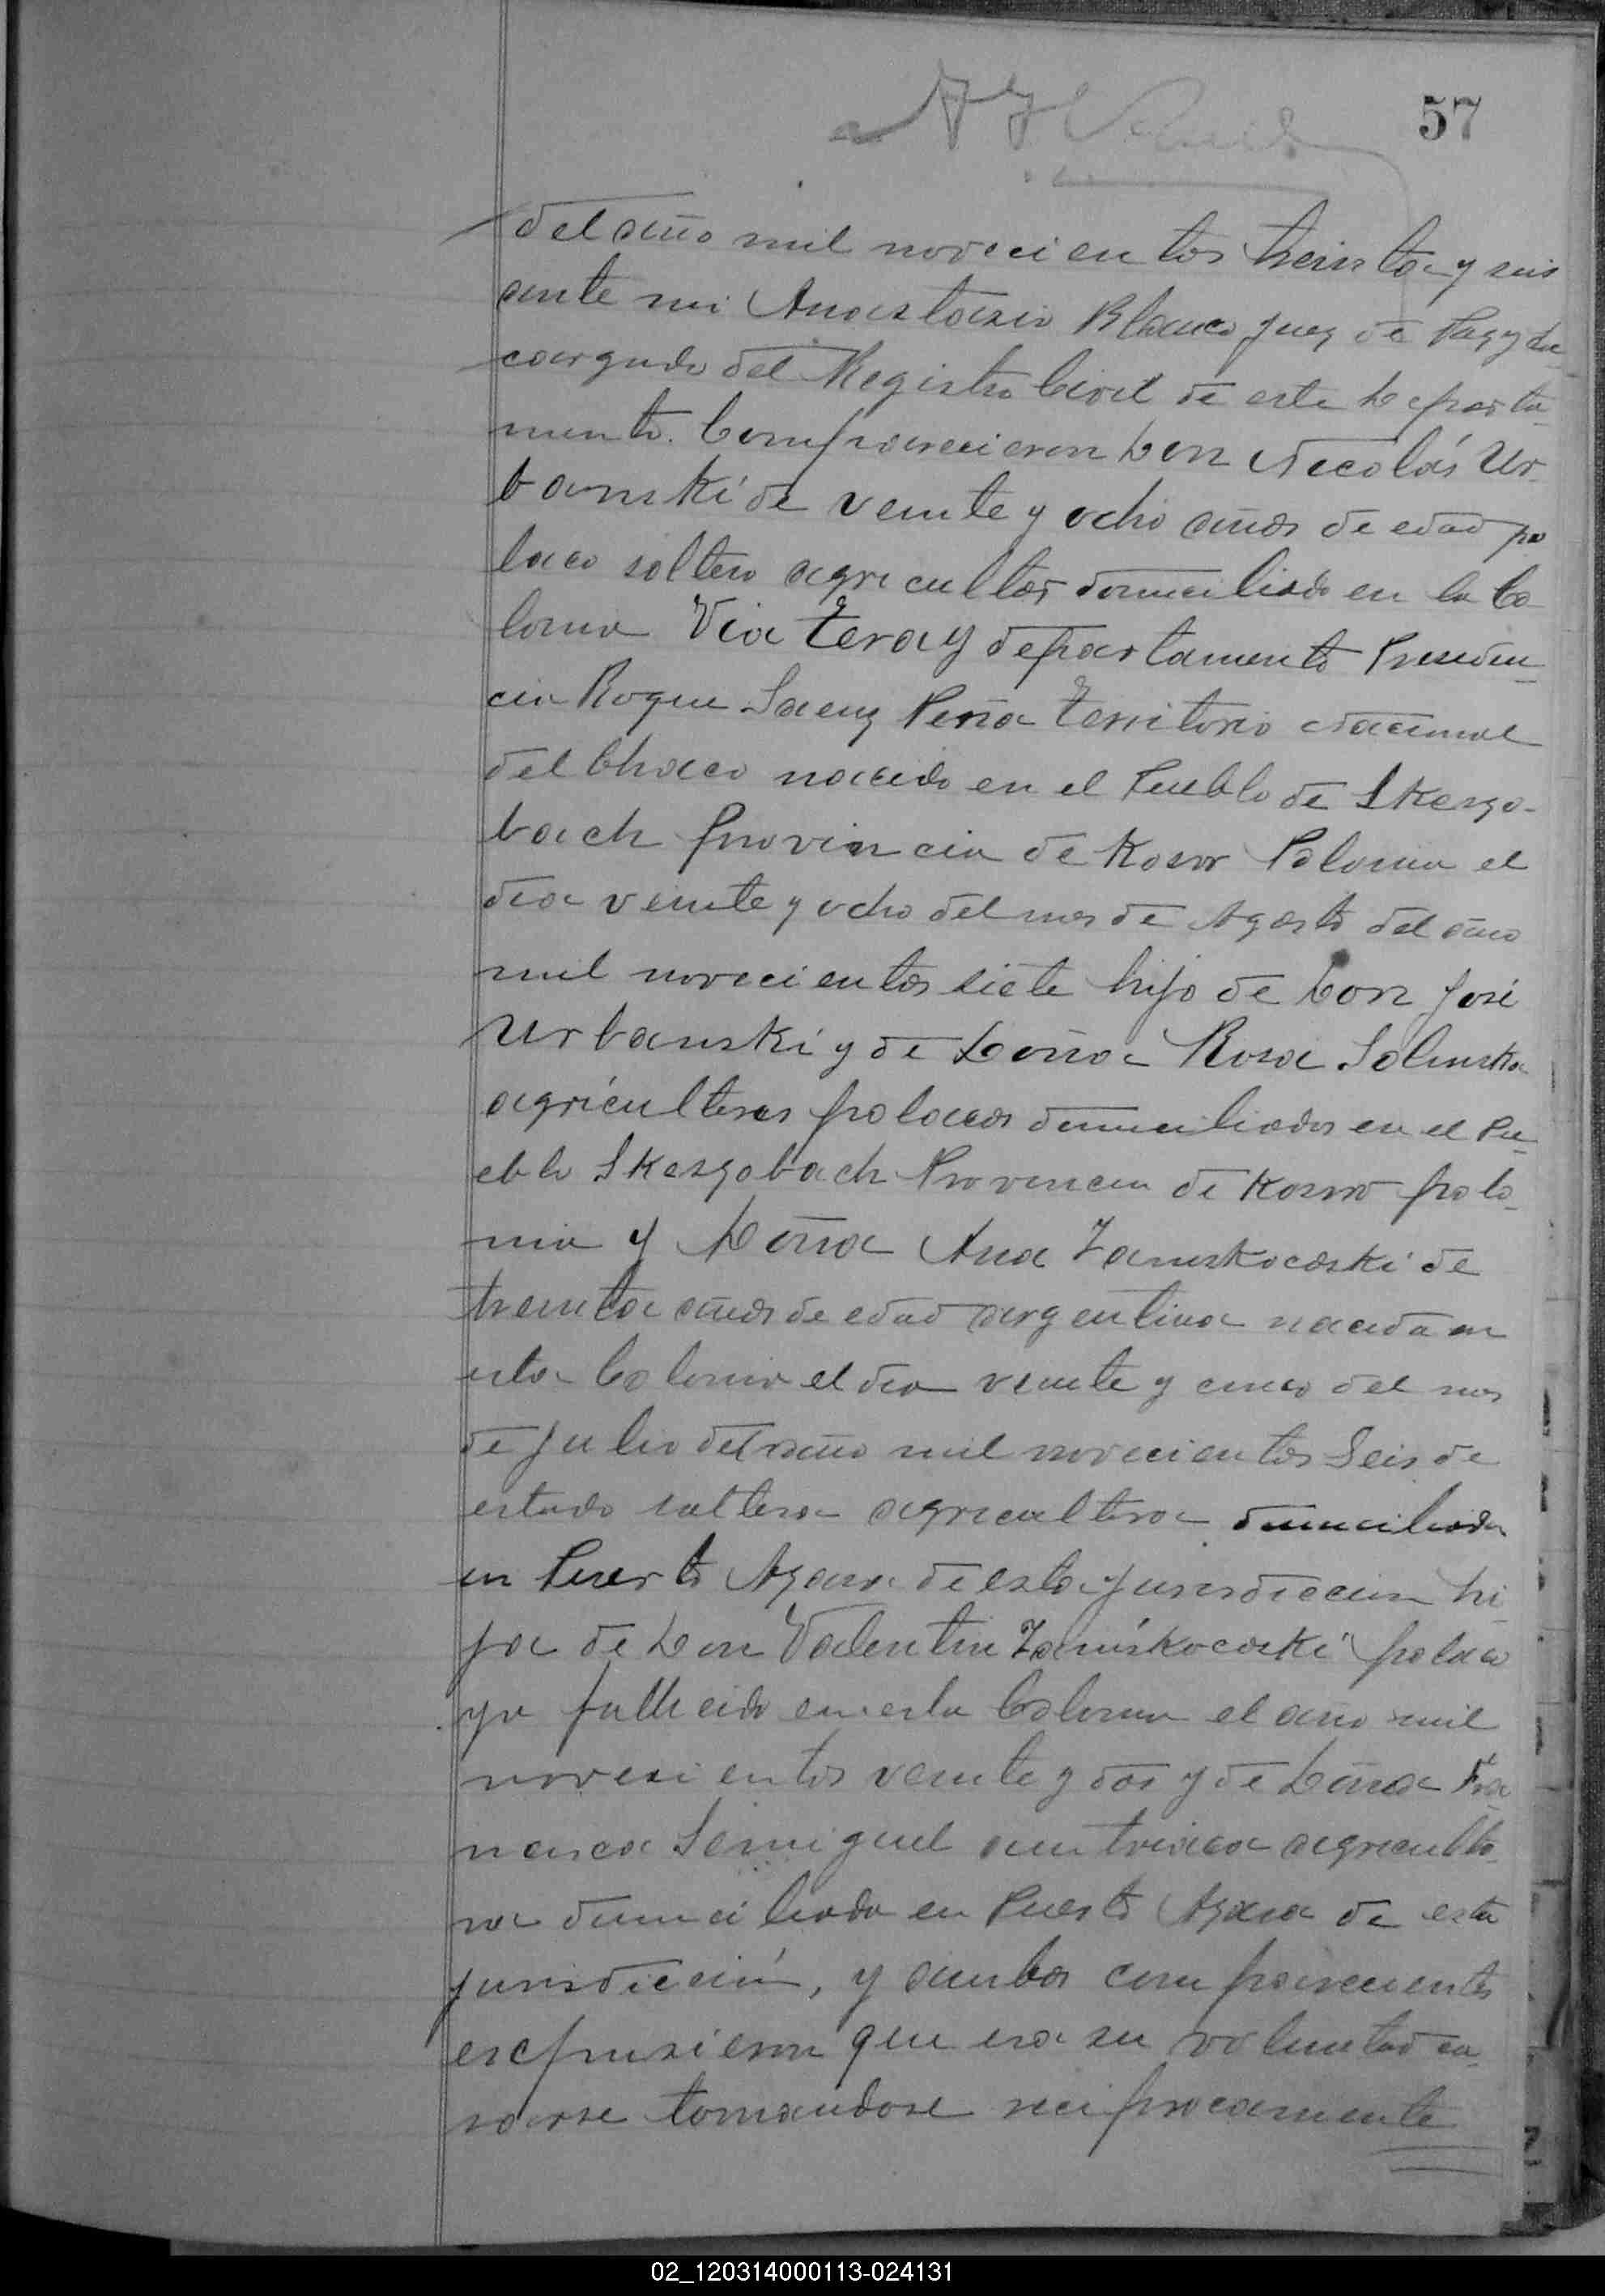 57
del año mil novecientos treinta y seis
ante mi Anastasio Blanco Juez de Paz y En
cargado del Registro Civil de este Departa-
mento. Comparecieron Don Nicolás Ur-
banski de veinte y ocho años de edad po
laco soltero agricultor domiciliado en la Co-
lonia Via teray departamento Presiden-
cia Roque Saenz Peña territorio nacional
del Chaco nacido en el Pueblo de Skesgo-
bach provincia de Kosov Polonia el
dia veinte y ocho del mes de Agosto del año
mil novecientos siete hijo de Don José
Urbanski y de Doña Rosa Solinska
agricultores polacos domiciliados en el Pu-
eblo Skesgobach Provincia de Kosov polo-
nia y Doña Ana Zaniskocoski de
treinta años de edad argentina nacida en
esta Colonia el dia veinte y cinco del mes
de Julio del año mil novecientos Seis de
estado soltera agricultora domiciliada
en Puerto Azara de esta jurisdiccion hi-
ja de Don Valentin Zaniskocoski polaco
ya fallecido en esta Colonia el año mil
novecientos veinte y dos y de Doña Fra
ncisca Semiguel austriaca agriculto-
ra domiciliada en Puerto Azara de esta
jurisdicción, y ambos comparecientes
expusieron que era su voluntad ca-
sarse tomandose reciprocamente
02_120314000113-024131